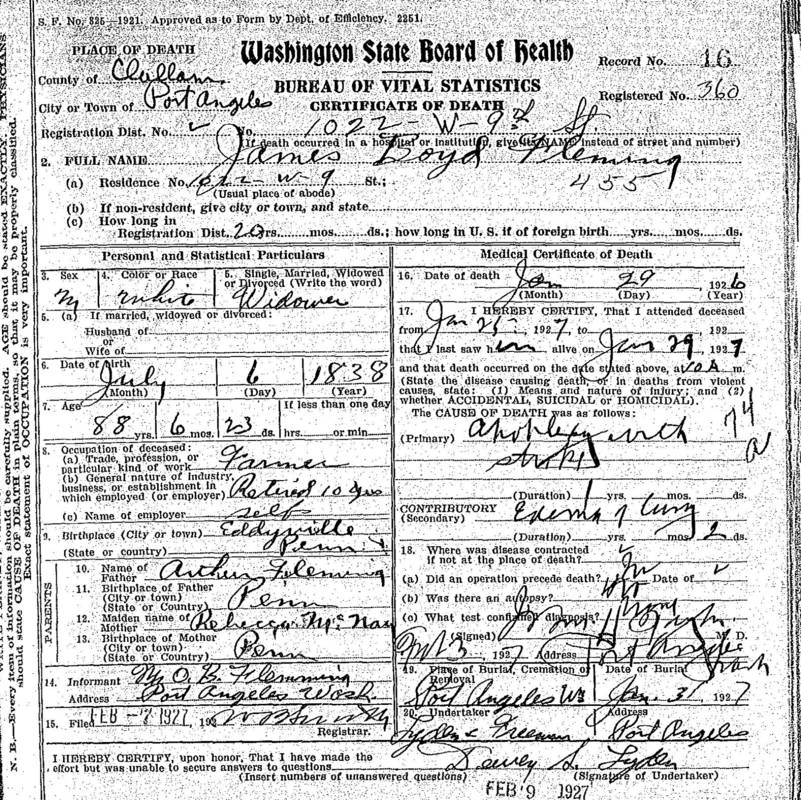 S. F. No. 325—1921. Approved as to Form by Dept. of Efficiency. 2251.
PLACE OF DEATH
Washington State Board of Health
Record No. 16
County of Clallam
BUREAU OF VITAL STATISTICS
Registered No. 360
City or Town of Port Angeles
CERTIFICATE OF DEATH
Registration Dist. No. No. 1022-W-9th St.
(If death occurred in a hospital or institution, give its NAME instead of street and number)
2. FULL NAME James Boyd Fleming
455
(a) Residence No. 1022-W-9 St.;
(Usual place of abode)
(b) If non-resident, give city or town, and state
(c) How long in
Registration Dist. 20 yrs. mos. ds.; how long in U. S. if of foreign birth yrs. mos. ds.
Personal and Statistical Particulars
3. Sex 4. Color or Race 5. Single, Married, Widowed
or Divorced (Write the word)
M White Widower
5. (a) If married, widowed or divorced:
Husband of
or
Wife of
6. Date of Birth
July 6 1838
(Month) (Day) (Year)
7. Age If less than one day
88 yrs. 6 mos. 23 ds. hrs. or min.
8. Occupation of deceased:
(a) Trade, profession, or
particular kind of work Farmer
(b) General nature of industry,
business, or establishment in
which employed (or employer) Retired 10 yrs
(c) Name of employer self
9. Birthplace (City or town) Eddyville
(State or country) Penn
PARENTS
10. Name of
Father Arthur Flemming
11. Birthplace of Father
(City or town)
(State or Country) Penn
12. Maiden name of
Mother Rebecca McNay
13. Birthplace of Mother
(City or town)
(State or Country) Penn
14. Informant M O. B. Flemming
Address Port Angeles Wash.
15. Filed FEB -7 1927, 192
Registrar.
Medical Certificate of Death
16. Date of death Jan 29 1926
(Month) (Day) (Year)
17. I HEREBY CERTIFY, That I attended deceased
from Jan 25 1927, to 192
that I last saw him alive on Jan 29, 1927
and that death occurred on the date stated above, at 10 A m.
(State the disease causing death, or in deaths from violent
causes, state: (1) Means and nature of injury; and (2)
whether ACCIDENTAL, SUICIDAL or HOMICIDAL).
The CAUSE OF DEATH was as follows:
(Primary) Apoplexy with
74
a
(Duration) yrs. mos. ds.
CONTRIBUTORY Edema of Lung
(Secondary)
(Duration) yrs. mos. 2 ds.
18. Where was disease contracted
if not at the place of death?
(a) Did an operation precede death? No Date of
(b) Was there an autopsy? No
(c) What test confirmed diagnosis?
(Signed) M. D.
3 1927 Address Pt Angeles
Wash
19. Place of Burial, Cremation or Removal Date of Burial
Port Angeles Wn Jan. 31 1927
20. Undertaker Address
Lyden & Freeman Port Angeles
I HEREBY CERTIFY, upon honor, That I have made the
effort but was unable to secure answers to questions
(Insert numbers of unanswered questions)
Dewey S. Lyden
(Signature of Undertaker)
FEB 9 1927
N. B.—Every item of information should be carefully supplied. AGE should be stated EXACTLY. PHYSICIANS
should state CAUSE OF DEATH in plain terms, so that it may be properly classified.
Exact statement of OCCUPATION is very important.